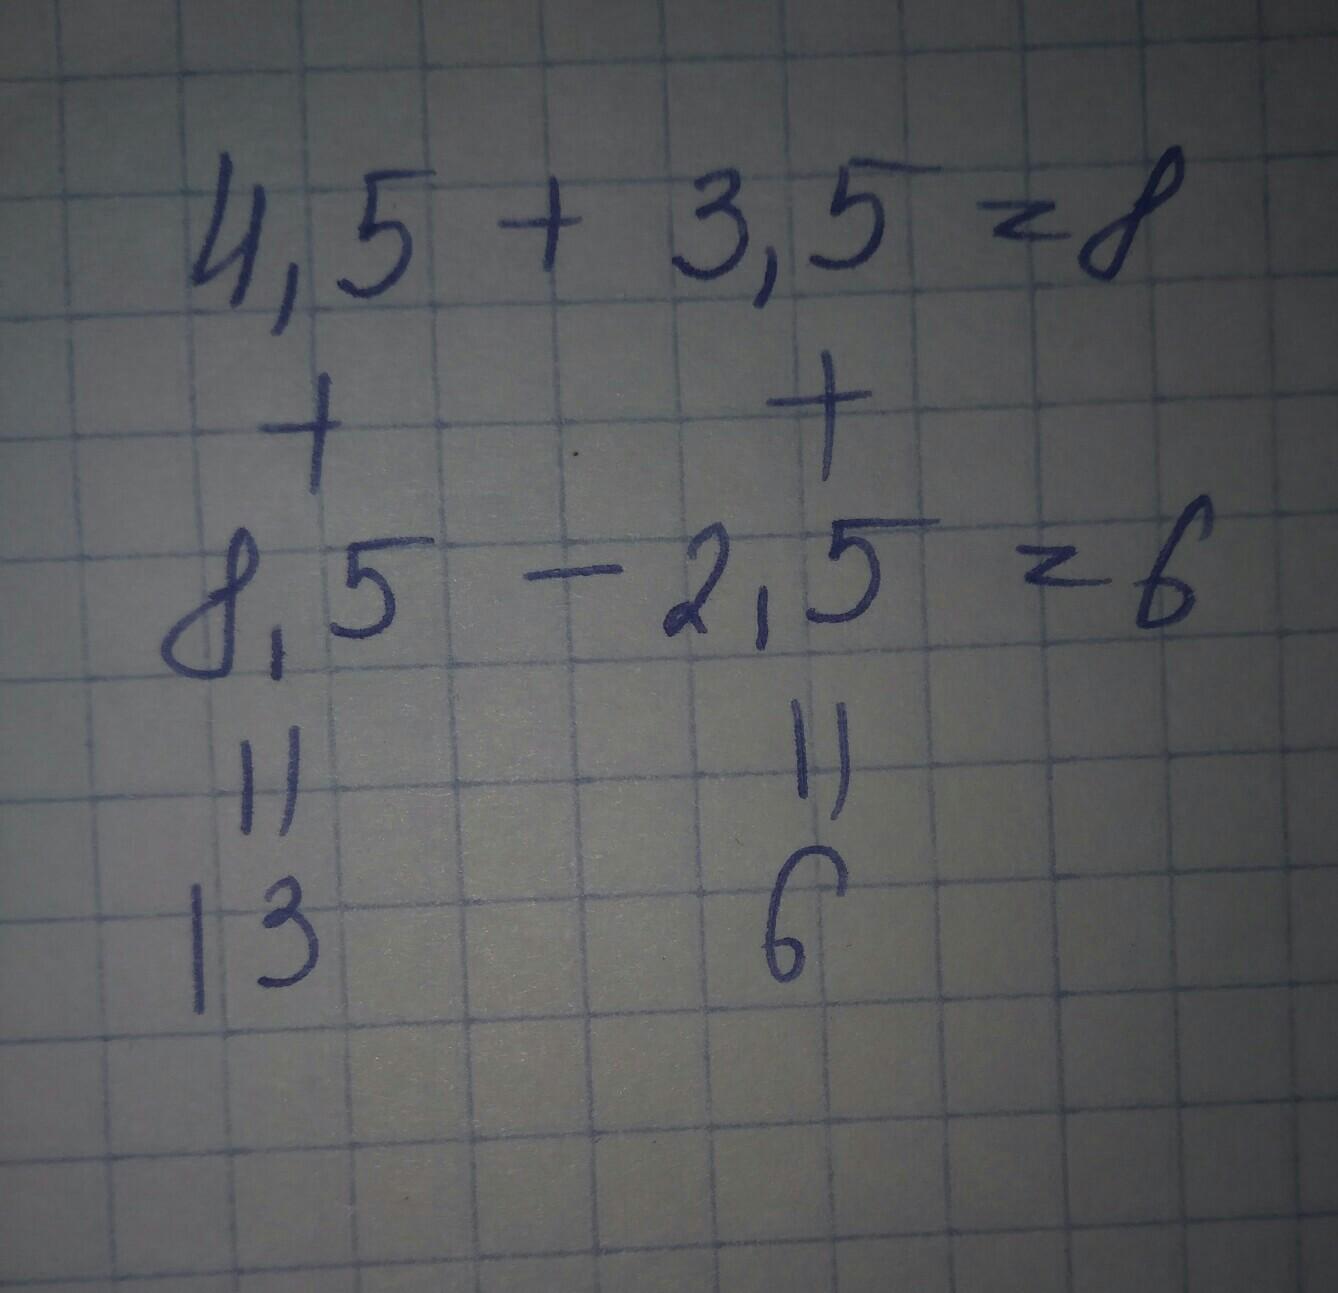 4,5 + 3,5 = 8
+ +
8,5 - 2,5 = 6
|| ||
13 6